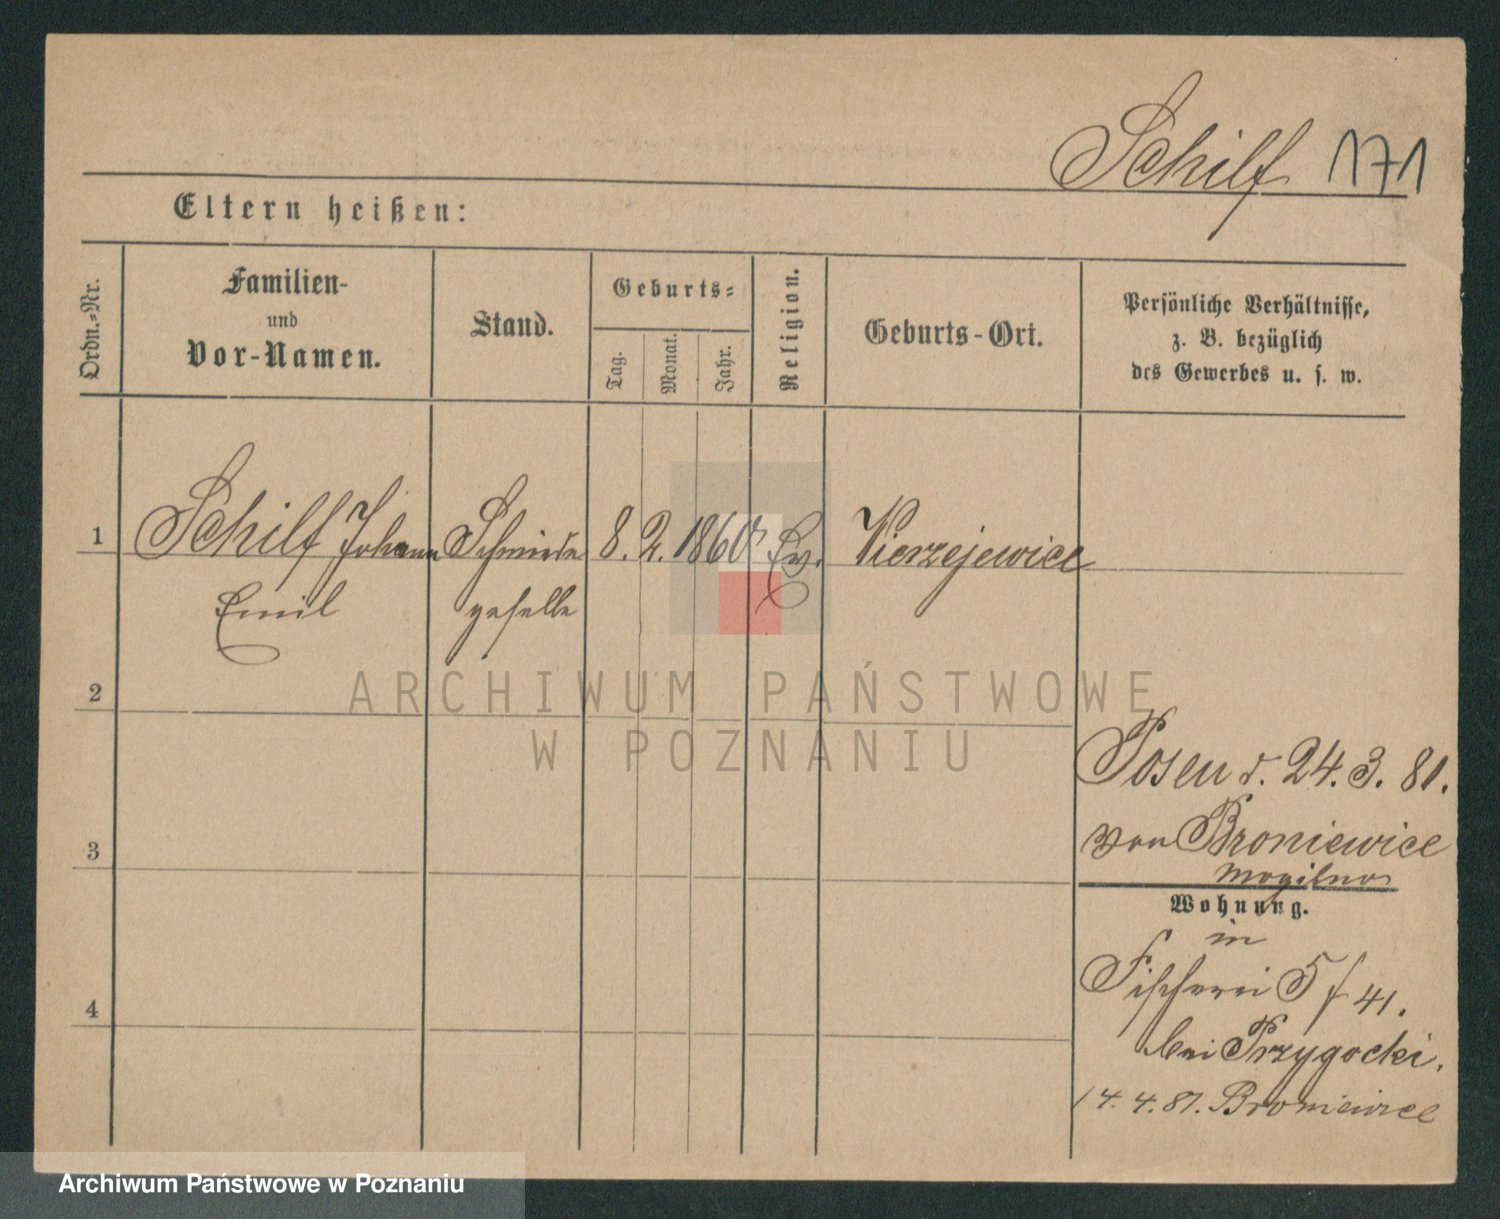 Schilf 171
Eltern heißen:
Ordn.-Nr.
Familien-
und
Vor-Namen.
Stand.
Geburts-
Tag.
Monat.
Jahr.
Religion.
Geburts-Ort.
Persönliche Verhältnisse,
z. B. bezüglich
des Gewerbes u. s. w.
1 Schilf Johann Schmiede 8. 2. 1860 Ev. Wierzejewice
Emil geselle
2
ARCHIWUM PAŃSTWOWE
W POZNANIU
Posen d. 24. 3. 81.
3 von Broniewice
Mogilno
Wohnung.
in
Fischerei 5 / 41.
4
bei Przygocki.
14. 4. 81. Broniewice
Archiwum Państwowe w Poznaniu